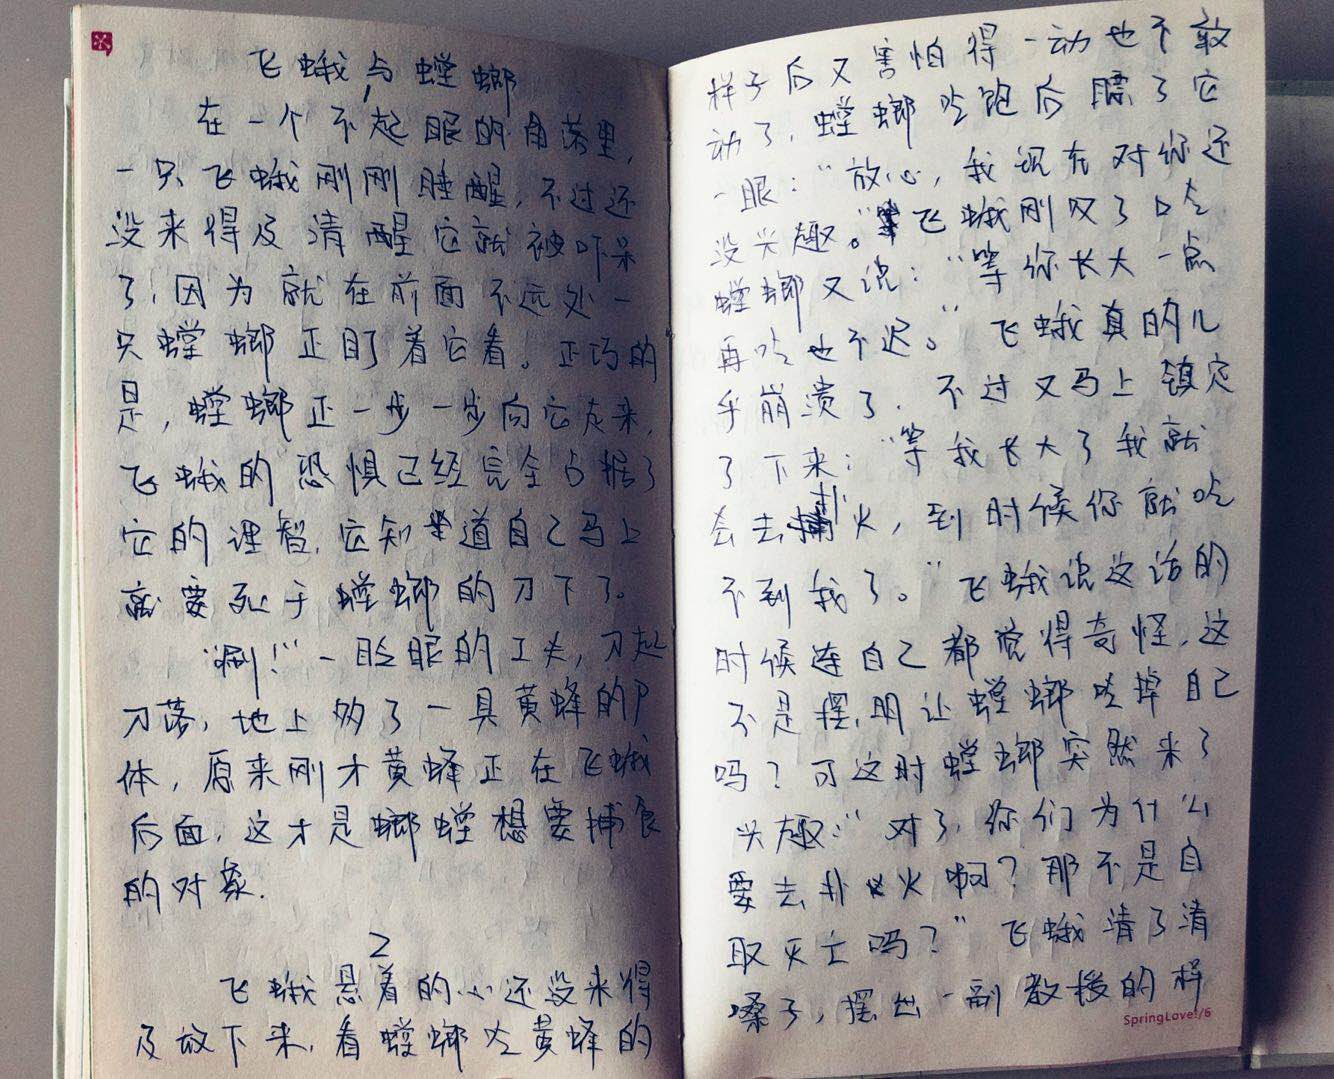 飞蛾与螳螂
在一个不起眼的角落里，
一只飞蛾刚刚睡醒，不过还
没来得及清醒它就被吓呆
了，因为就在前面不远处一
只螳螂正盯着它看。正巧的
是，螳螂正一步一步向它走来，
飞蛾的恐惧已经完全占据了
它的理智，它知道自己马上
就要死于螳螂的刀下了。
“唰！”一眨眼的工夫，刀起
刀落，地上多了一具黄蜂的尸
体，原来刚才黄蜂正在飞蛾
后面，这才是螂螳想要捕食
的对象.
2
飞蛾悬着的心还没来得
及放下来，看螳螂吃黄蜂的
样子后又害怕得一动也不敢
动了，螳螂吃饱后瞟了它
一眼：“放心，我现在对你还
没兴趣。”飞蛾刚叹了口气
螳螂又说：“等你长大一点
再吃也不迟。”飞蛾真的几
乎崩溃了．不过又马上镇定
了下来：“等我长大了我就
会去扑火，到时候你就吃
不到我了。”飞蛾说这话的
时候连自己都觉得奇怪，这
不是摆明让螳螂吃掉自己
吗？可这时螳螂突然来了
兴趣：“对了，你们为什么
要去扑火啊？那不是自
取灭亡吗？”飞蛾清了清
嗓子，摆出一副教授的样
SpringLove!/6